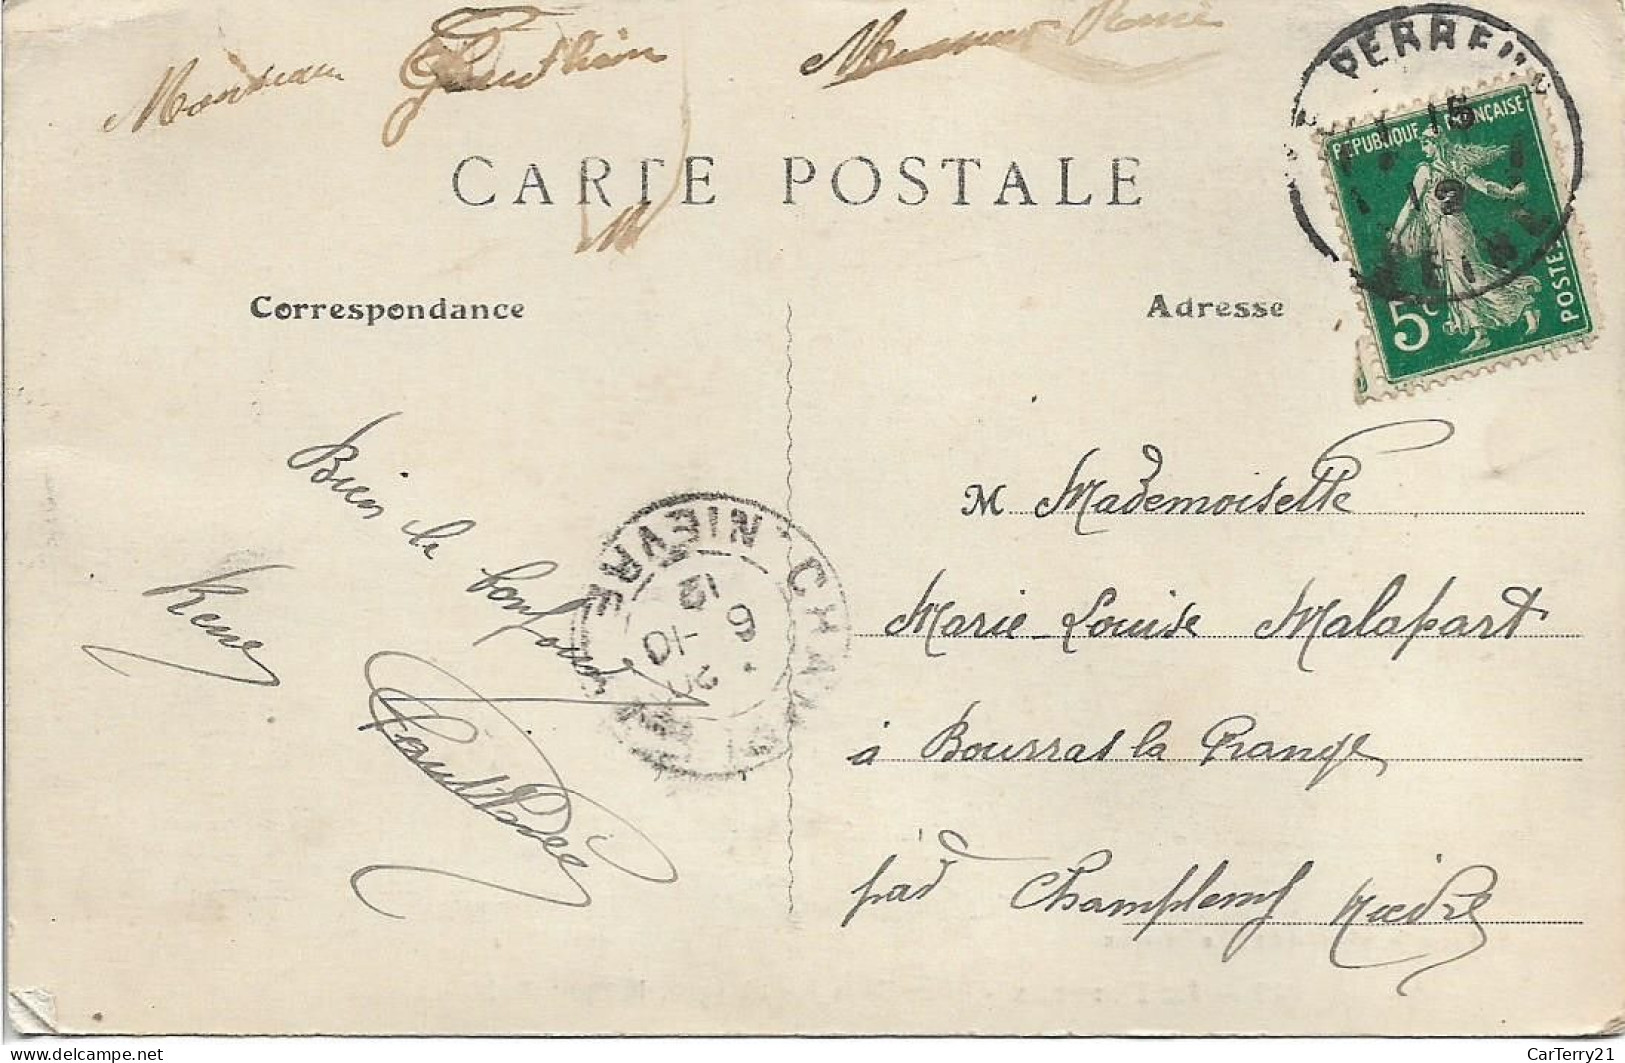 Monsieur Gauthier Monsieur René
CARTE POSTALE
M
Correspondance
Adresse
RÉPUBLIQUE FRANÇAISE
5c
POSTES
15
19
Bien le bonjour
René
Gauthier
NIEVRE
20 -10
6
12
M Mademoiselle
Marie-Louise Malapart
à Bourras la Grange
par Champlemy Nièvre
CarTerry21
www.delcampe.net